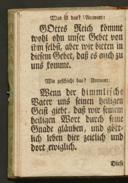 Was ist das? Antwort:
GOttes Reich kommt
wohl ohn unser Gebet von
ihm selbst, aber wir bitten in
diesem Gebet, daß es auch zu
uns komme.
Wie geschicht das? Antwort:
Wenn der himmlische
Vater uns seinen heiligen
Geist giebt, daß wir seinem
heiligen Wort durch seine
Gnade gläuben, und gött-
lich leben hier zeitlich und
dort ewiglich.